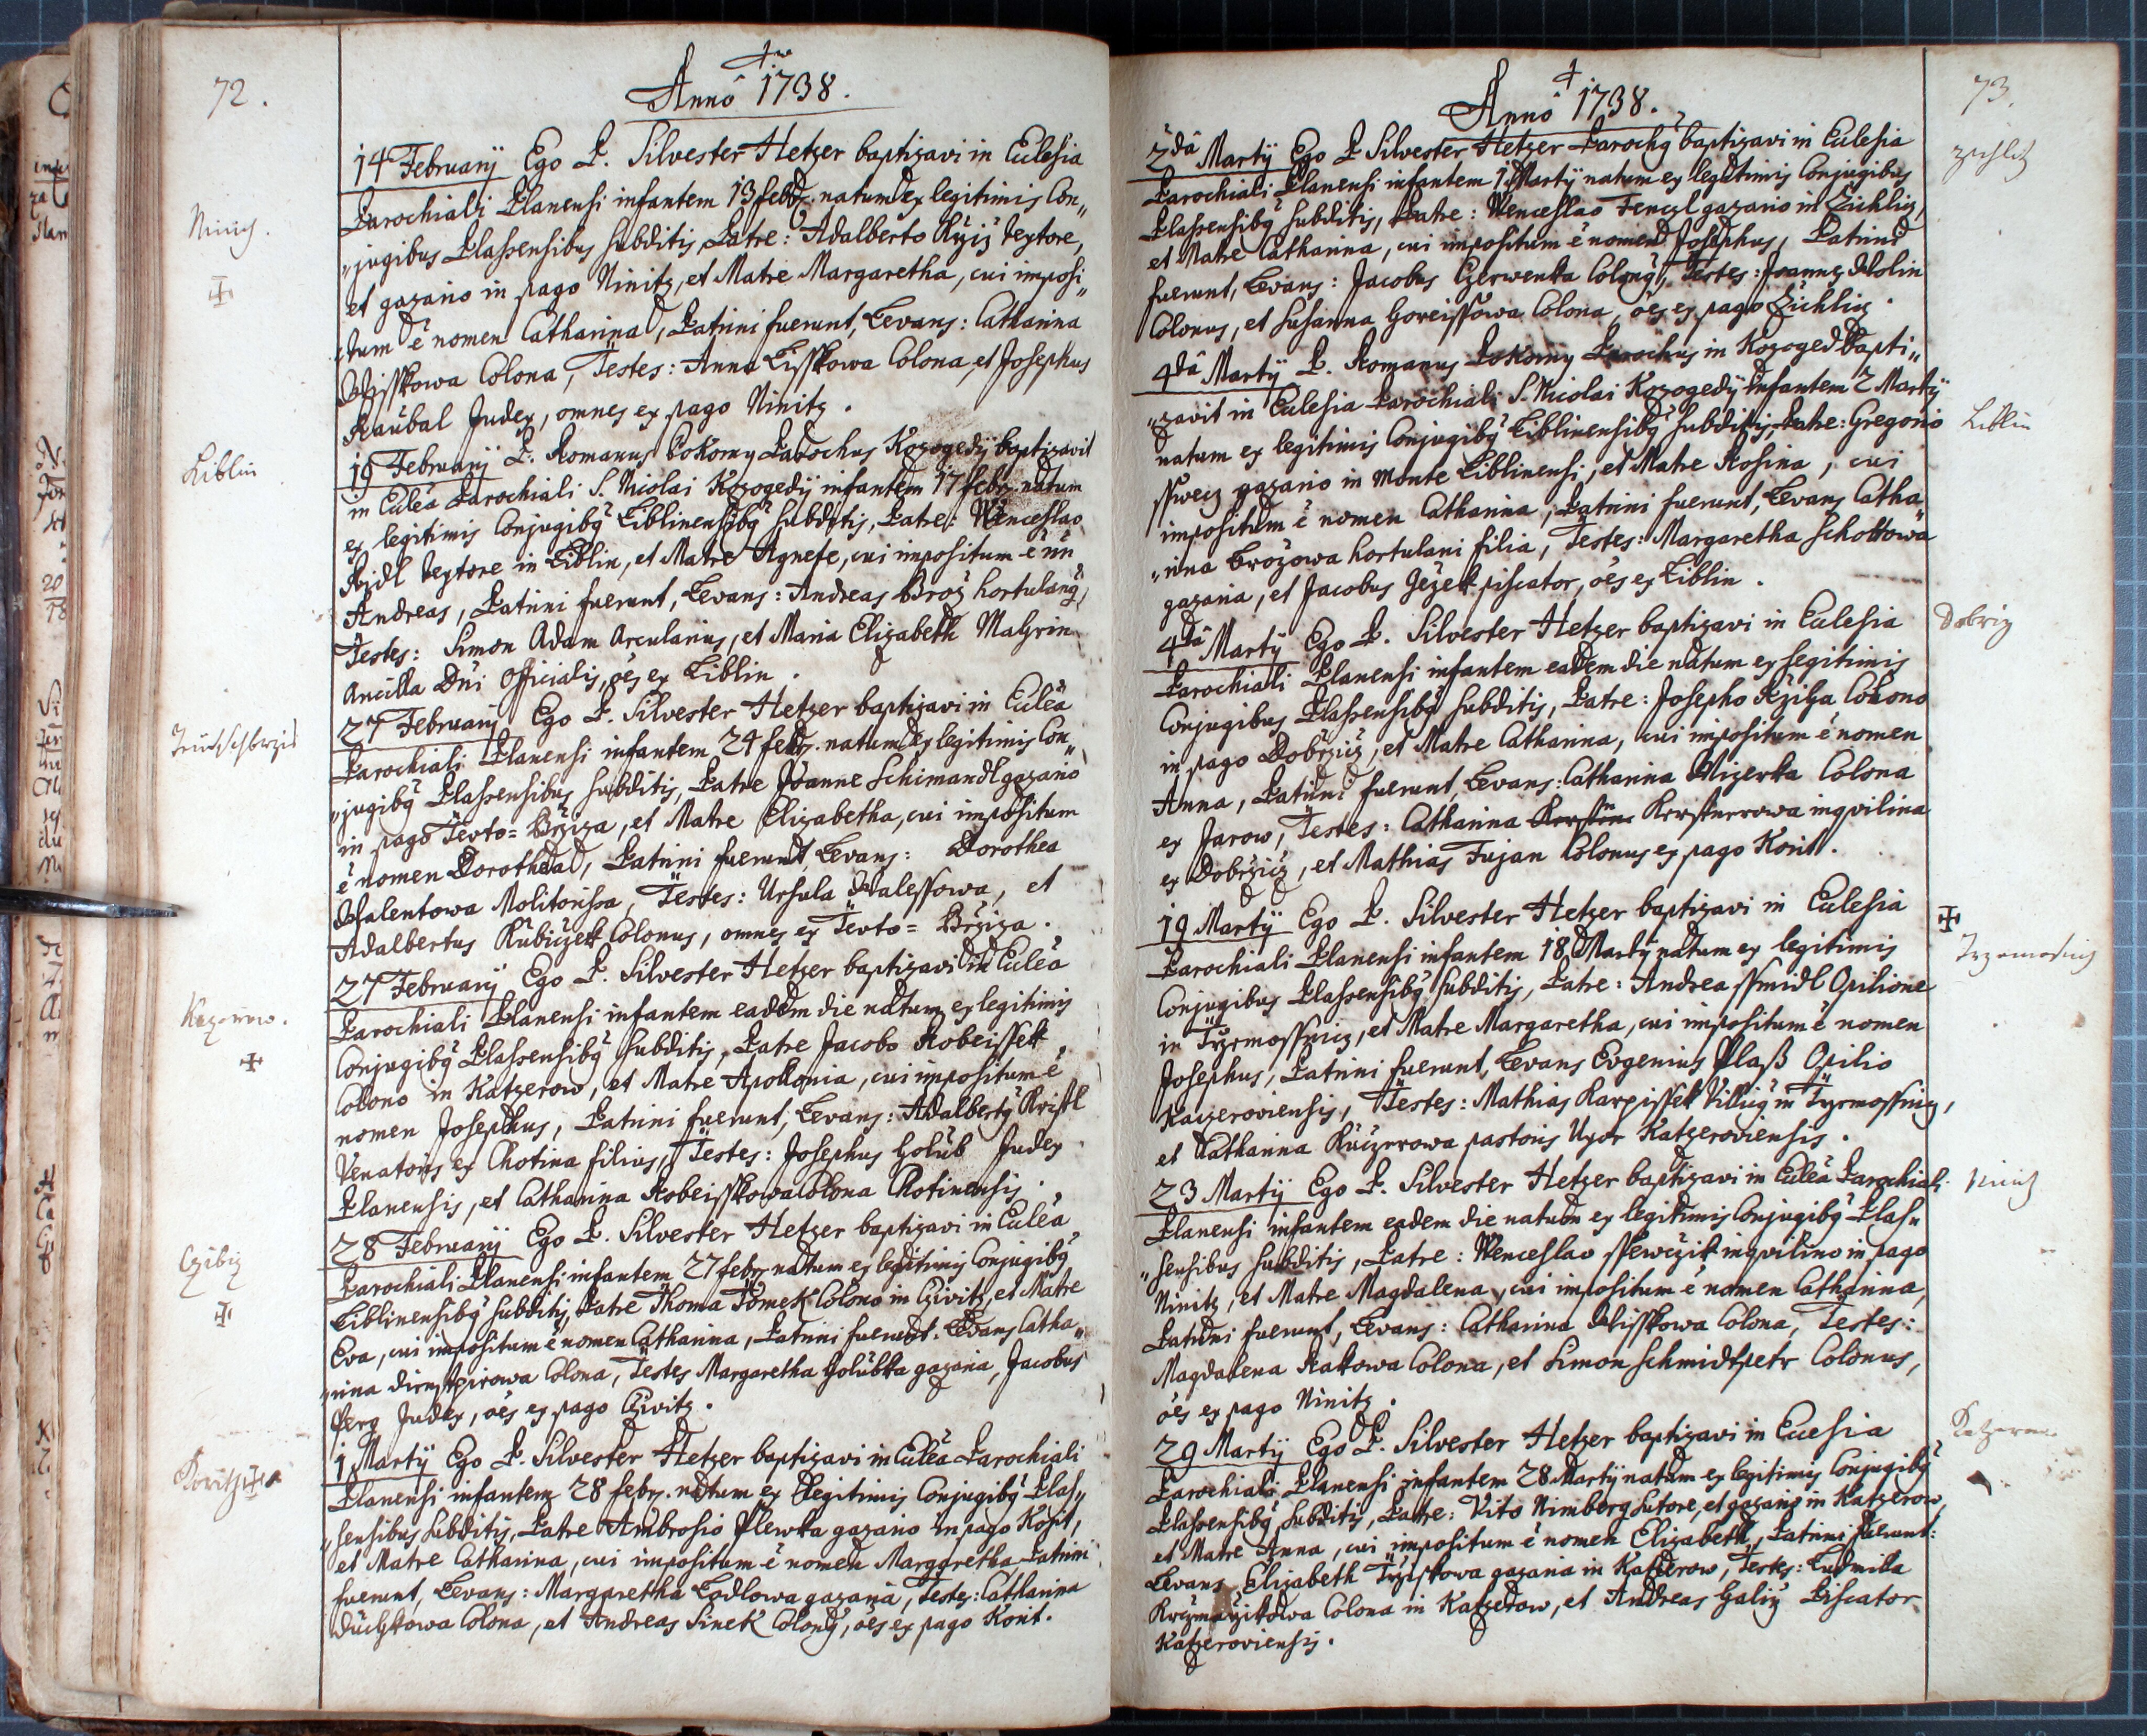 72.
Anno 1738.
Ninich.
14 February Ego P. Silvester Hetzer baptizavi in Eculesia
Parochiali Planensi infantem 13 febr. natum ex legitimis Con„
„jugibus Plassensibus subditis, Patre: Adalberto textore,
et gazario in pago Ninitz, et Matre Margaretha, cui imposi„
„tum ē nomen Catharina, Patrini fuerunt, Levans: Catharina
Wisskowa Colona, Testes: Anna Lisskowa Colona, et Josephus
Raubal Judex, omnes ex pago Ninitz.
Liblin
19 February P. Romanus Pokorny Parochus Kozogedÿ baptizavit
in Eulea Parochiali S. Nicolai Kozogedÿ infantem 17 febr. natum
ex legitimis Conjugibq Liblinensibq subditis, Patre: Wenceslao
textore in Liblin, et Matre Agnete, cui impositum ē nn
Andreas, Patrini fuerunt, Levans: Andreas Broz hortulanq,
Testes: Simon Adam Arcularius, et Maria Elizabeth
Ancilla Dni Officialis, oēs ex Liblin.
27 February Ego P. Silvester Hetzer baptizavi in Eulea
Parochiali Planensi infantem 24 febr. natum ex legitimis Con„
„jugibq Plassensibus subditis, Patre Joanne Schimandl gazario
in pago Tevto=Brziza, et Matre Elizabetha, cui impositum
ē nomen Dorothea, Patrini fuerunt, Levans: Dorothea
Walentowa Molitorissa, Testes: Ursula Walessowa, et
Adalbertus Kubiczek Colonus, omnes ex Tevto=Brziza.
Kazerow.
27 February Ego P. Silvester Hetzer baptizavi in Eulea
Parochiali Planensi infantem eadem die natum ex legitimis
Conjugibq Plassensibq subditis, Patre Jacobo Robeissek
Colono in Katzerow, et Matre Apollonia, cui impositum ē
nomen Josephus, Patrini fuerunt, Levans: Adalbertq Kristl
Venatoris ex Chotina filius, Testes: Josephus Holub Judex
Planensis, et Catharina Robeisskowa Colona Chotinensis.
Czibiz
28 February Ego P. Silvester Hetzer baptizavi in Eulea
Parochiali Planensi infantem 27 febr. natum ex legitimis Conjugibq
Liblinensibq subditis, Patre Thoma Tomek Colono in Cziwitz, et Matre
Eva, cui impositum ē nomen Catharina, Patrini fuerunt. Levans Catha„
„rina Colona, Testes Margaretha Holubka gazaria, Jacobus
Judex, oēs ex pago Cziwitz.
1 Martÿ Ego P. Silvester Hetzer baptizavi in Eulea Parochiali
Planensi infantem 28 febr. natum ex legitimis Conjugibq Plas„
„sensibus subditis, Patre Ambrosio Plewka gazario in pago Korit,
et Matre Catharina, cui impositum ē nomen Margaretha, Patrini
fuerunt, Levans: Margaretha Lodlowa gazaria, Testes: Catharina
Colona, et Andreas Sinek Colonq, oēs ex pago Korit.
73.
Anno 1738.
zichlitz
2da Martÿ Ego P Silvester Hetzer Parochq baptizavi in Eculesia
Parochiali Planensi infantem 1 Martÿ natum ex legitimis Conjugibus
Plassensibq subditis, Patre: Wenceslao Fenczl gazario in Zichliz,
et Matre Catharina, cui impositum ē nomen Josephus, Patrini
fuerunt, Levans: Jacobus Czerwenka Colonq, Testes: Joannes Wolin
Colonus, et Susanna Goreissowa Colona, oēs ex pago Zichliz.
4da Martÿ P. Romanus Pokorny Parochus in Kozoged bapti„
„zavit in Eculesia Parochiali S. Nicolai Kozogedÿ infantem 2 Martÿ
Liblin
natum ex legitimis Conjugibq Liblinensibq subditis, Patre: Gregorio
sswecz gazario in Monte Liblinensi, et Matre Rosina, cui
impositum ē nomen Catharina, Patrini fuerunt, Levans Catha„
„rina Brozowa hortulani filia, Testes: Margaretha Schottowa
gazaria, et Jacobus Gezek piscator, oēs ex Liblin.
Dobriz
4da Martÿ Ego P. Silvester Hetzer baptizavi in Eculesia
Parochiali Planensi infantem eadem die natum ex legitimis
Conjugibus Plassensibq subditis, Patre: Josepho Colono
in pago Dobrziz, et Matre Catharina, cui impositum ē nomen
Anna, Patrini fuerunt, Levans: Catharina Mizerka Colona
ex Jarow, Testes: Catharina inqvilina
ex Dobrziz, et Mathias Fujan Colonus ex pago Korit.
19 Martÿ Ego P. Silvester Hetzer baptizavi in Eculesia
Parochiali Planensi infantem 18 Martÿ natum ex legitimis
Conjugibus Plassensibq subditis, Patre: Andrea ssmidl Opilione
in Trzemossniz, et Matre Margaretha, cui impositum ē nomen
Josephus, Patrini fuerunt, Levans Evgenius Plaß Opilio
Kazeroviensis, Testes: Mathias Karpissek Villicq in Trzemossniz,
et Catharina Kuczerowa pastoris Uxor Katzeroviensis.
Ninitz
23 Martÿ Ego P. Silvester Hetzer baptizavi in Eulea Parochiali
Planensi infantem eadem die natum ex legitimis Conjugibq Plas„
„sensibus subditis, Patre: Wenceslao ssewczik inqvilino in pago
Ninitz, et Matre Magdalena, cui impositum ē nomen Catharina,
Patrini fuerunt, Levans: Catharina Wisskowa Colona, Testes:
Magdalena Rakowa Colona, et Simon Schmidtpetr Colonus,
oēs ex pago Ninitz.
Katzerow
29 Martÿ Ego P. Silvester Hetzer baptizavi in Euesia
Parochiali Planensi infantem 28 Martÿ natum ex legitimis Conjugibq
Plassensibq subditis, Patre: Vito Nimberg sutore, et gazario in Katzerow,
et Matre Anna, cui impositum ē nomen Elizabeth, Patrini fuerunt:
Levans Elizabeth gazaria in Katzerow, Testes: Ludmila
Colona in Katzerow, et Andreas Galiz Piscator
Katzeroviensis.